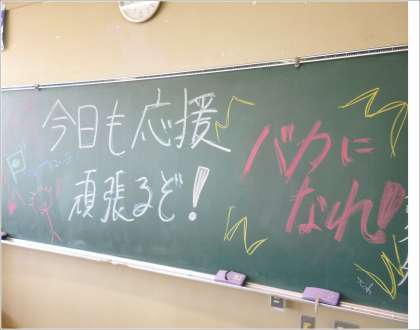 今日も応援
頑張るぞ!
バカに
なれ!